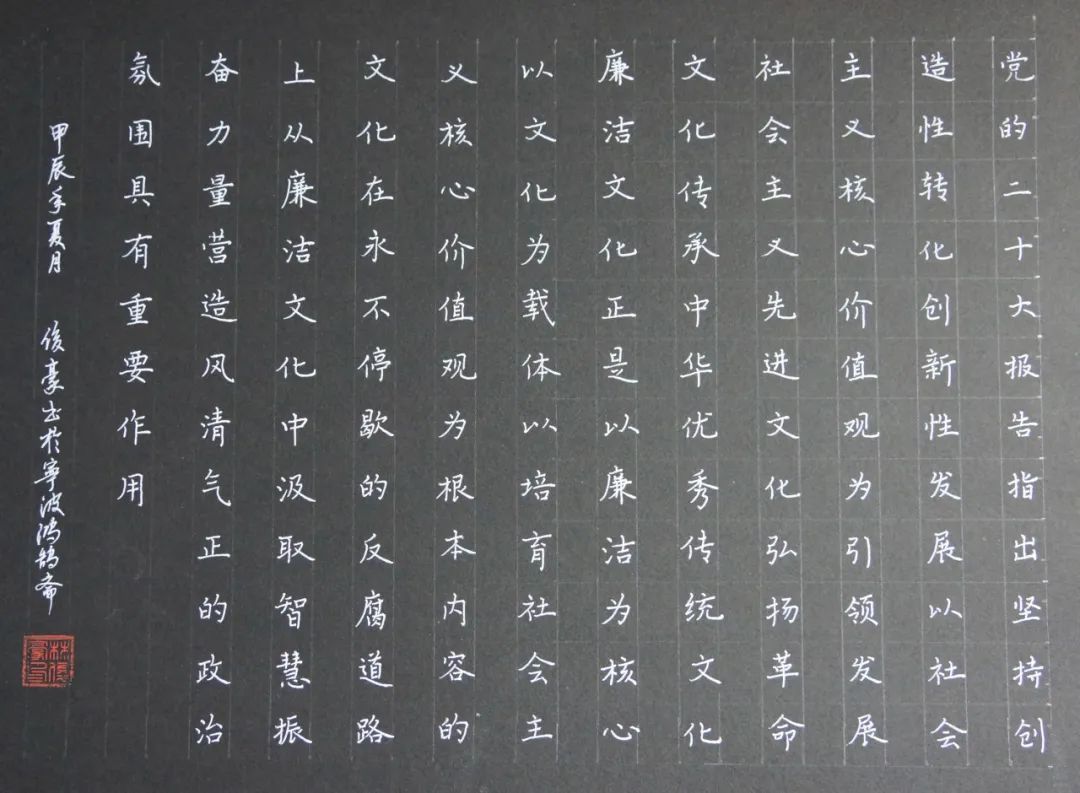 党的二十大报告指出坚持创
造性转化创新性发展以社会
主义核心价值观为引领发展
社会主义先进文化弘扬革命
文化传承中华优秀传统文化
廉洁文化正是以廉洁为核心
以文化为载体以培育社会主
义核心价值观为根本内容的
文化在永不停歇的反腐道路
上从廉洁文化中汲取智慧振
奋力量营造风清气正的政治
氛围具有重要作用
甲辰年夏月 俊豪书於寧波鸿鹄斋